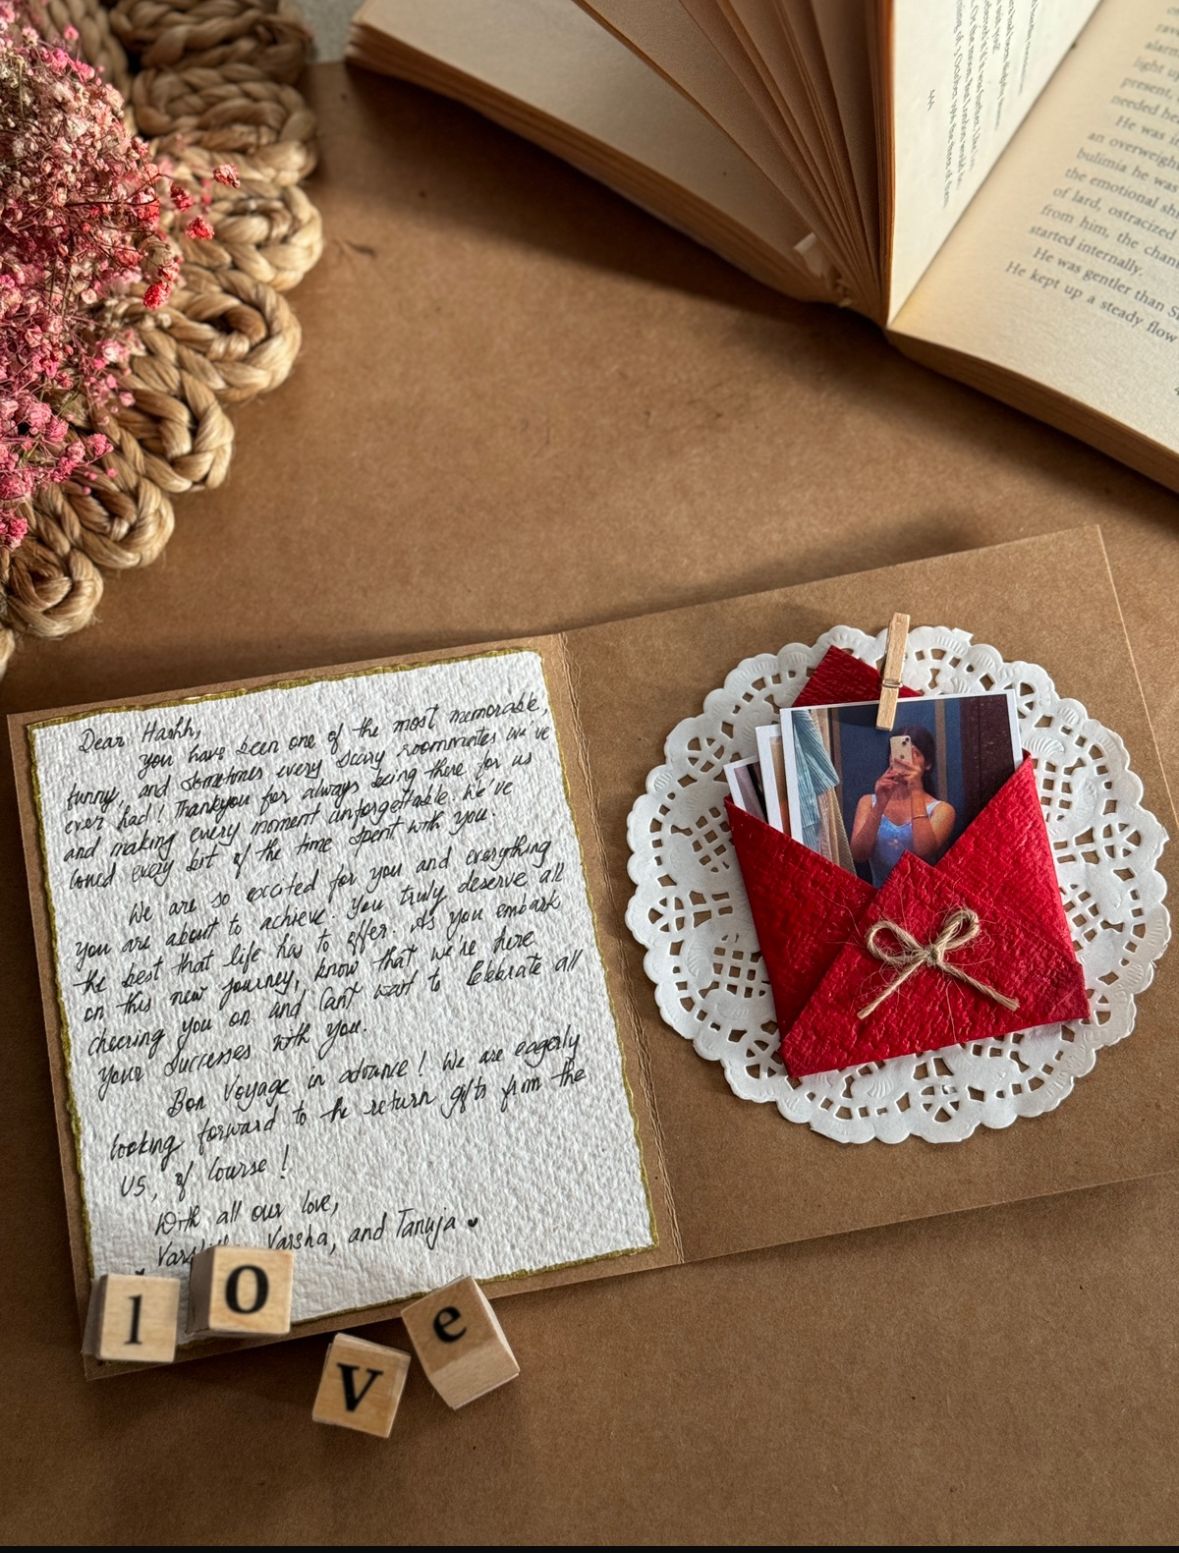 present,
needed he
He was i
an overweigh
bulimia he was
the emotional sh
of lard, ostracized
from him, the chan
started internally.
He was gentler than S
He kept up a steady flow
Dear Harhh,
You have been one of the most memorable,
funny, and sometimes every scary roommates we've
ever had! Thankyou for always being there for us
and making every moment unforgettable. We've
loved every bit of the time spent with you.
We are so excited for you and everything
you are about to achieve. You truly deserve all
the best that life has to offer. As you embark
on this new journey, know that we're here
cheering you on and Can't wait to Celebrate all
your Successes with you.
Bon Voyage in advance! We are eagerly
looking forward to the return gifts from the
US, of Course!
With all our love,
Varsha, and Tanuja ♥
l o v e